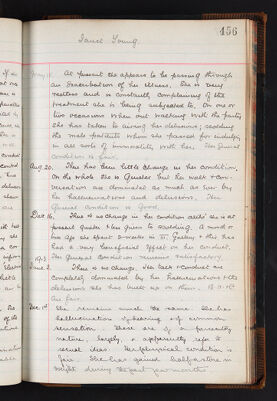 456
Janet Young
May 18. At present she appears to be passing through
an exacerbation of her illness. She is very
restless and is constantly complaining of the
treatment she is being subjected to. On one or
two occasions when out walking with the party
she has taken to airing her delusions; scolding
the male patients whom she passed for indulging
in all sorts of immorality with her. The General
condition is fair.
Aug. 20. There has been little change in her condition,
On the whole she is quieter but her talk & con-
versation are dominated as much as ever by
her hallucinations and delusions. The
General Condition is good.
Dec 16. There is no change in her condition
present quieter & less given to scolding. A month or
two ago she spent weeks in & this has
had a very beneficial effect on her conduct.
The General condition remains satisfactory.
June 2. There is no change, her talk & conduct are
completely dominated by her hallucinations & the
delusions she has built up on them.
are fair.
Dec 1st She remains much the same. She has
hallucinations of hearing and common
sensation. These are of a persecutory
nature, largely, & apparently refer to
sexual ideas. Her physical condition is
fair. She has gained half a stone in
weight during the past months